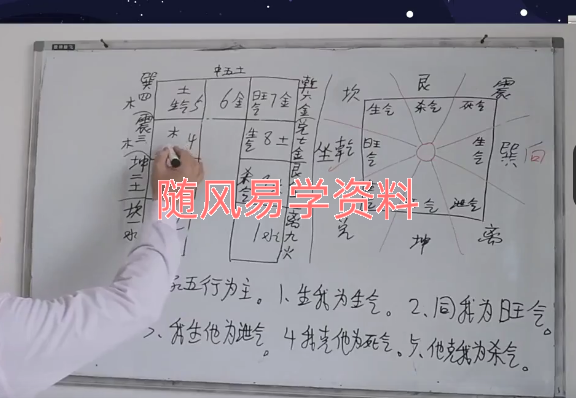 中五土
巽四木
土生气5
6金
旺气7金
乾六金
震三木
木4
生气8土
兑七金
坤二土
艮
坎一水
1水
离九火
坎
艮
震
生气
杀气
死气
坐乾
旺气
生气
巽向
泄气
兑
坤
离
随风易学资料
五行为主。1、生我为生气。2、同我为旺气。
3、我生他为泄气。4我克他为死气。5、他克我为杀气